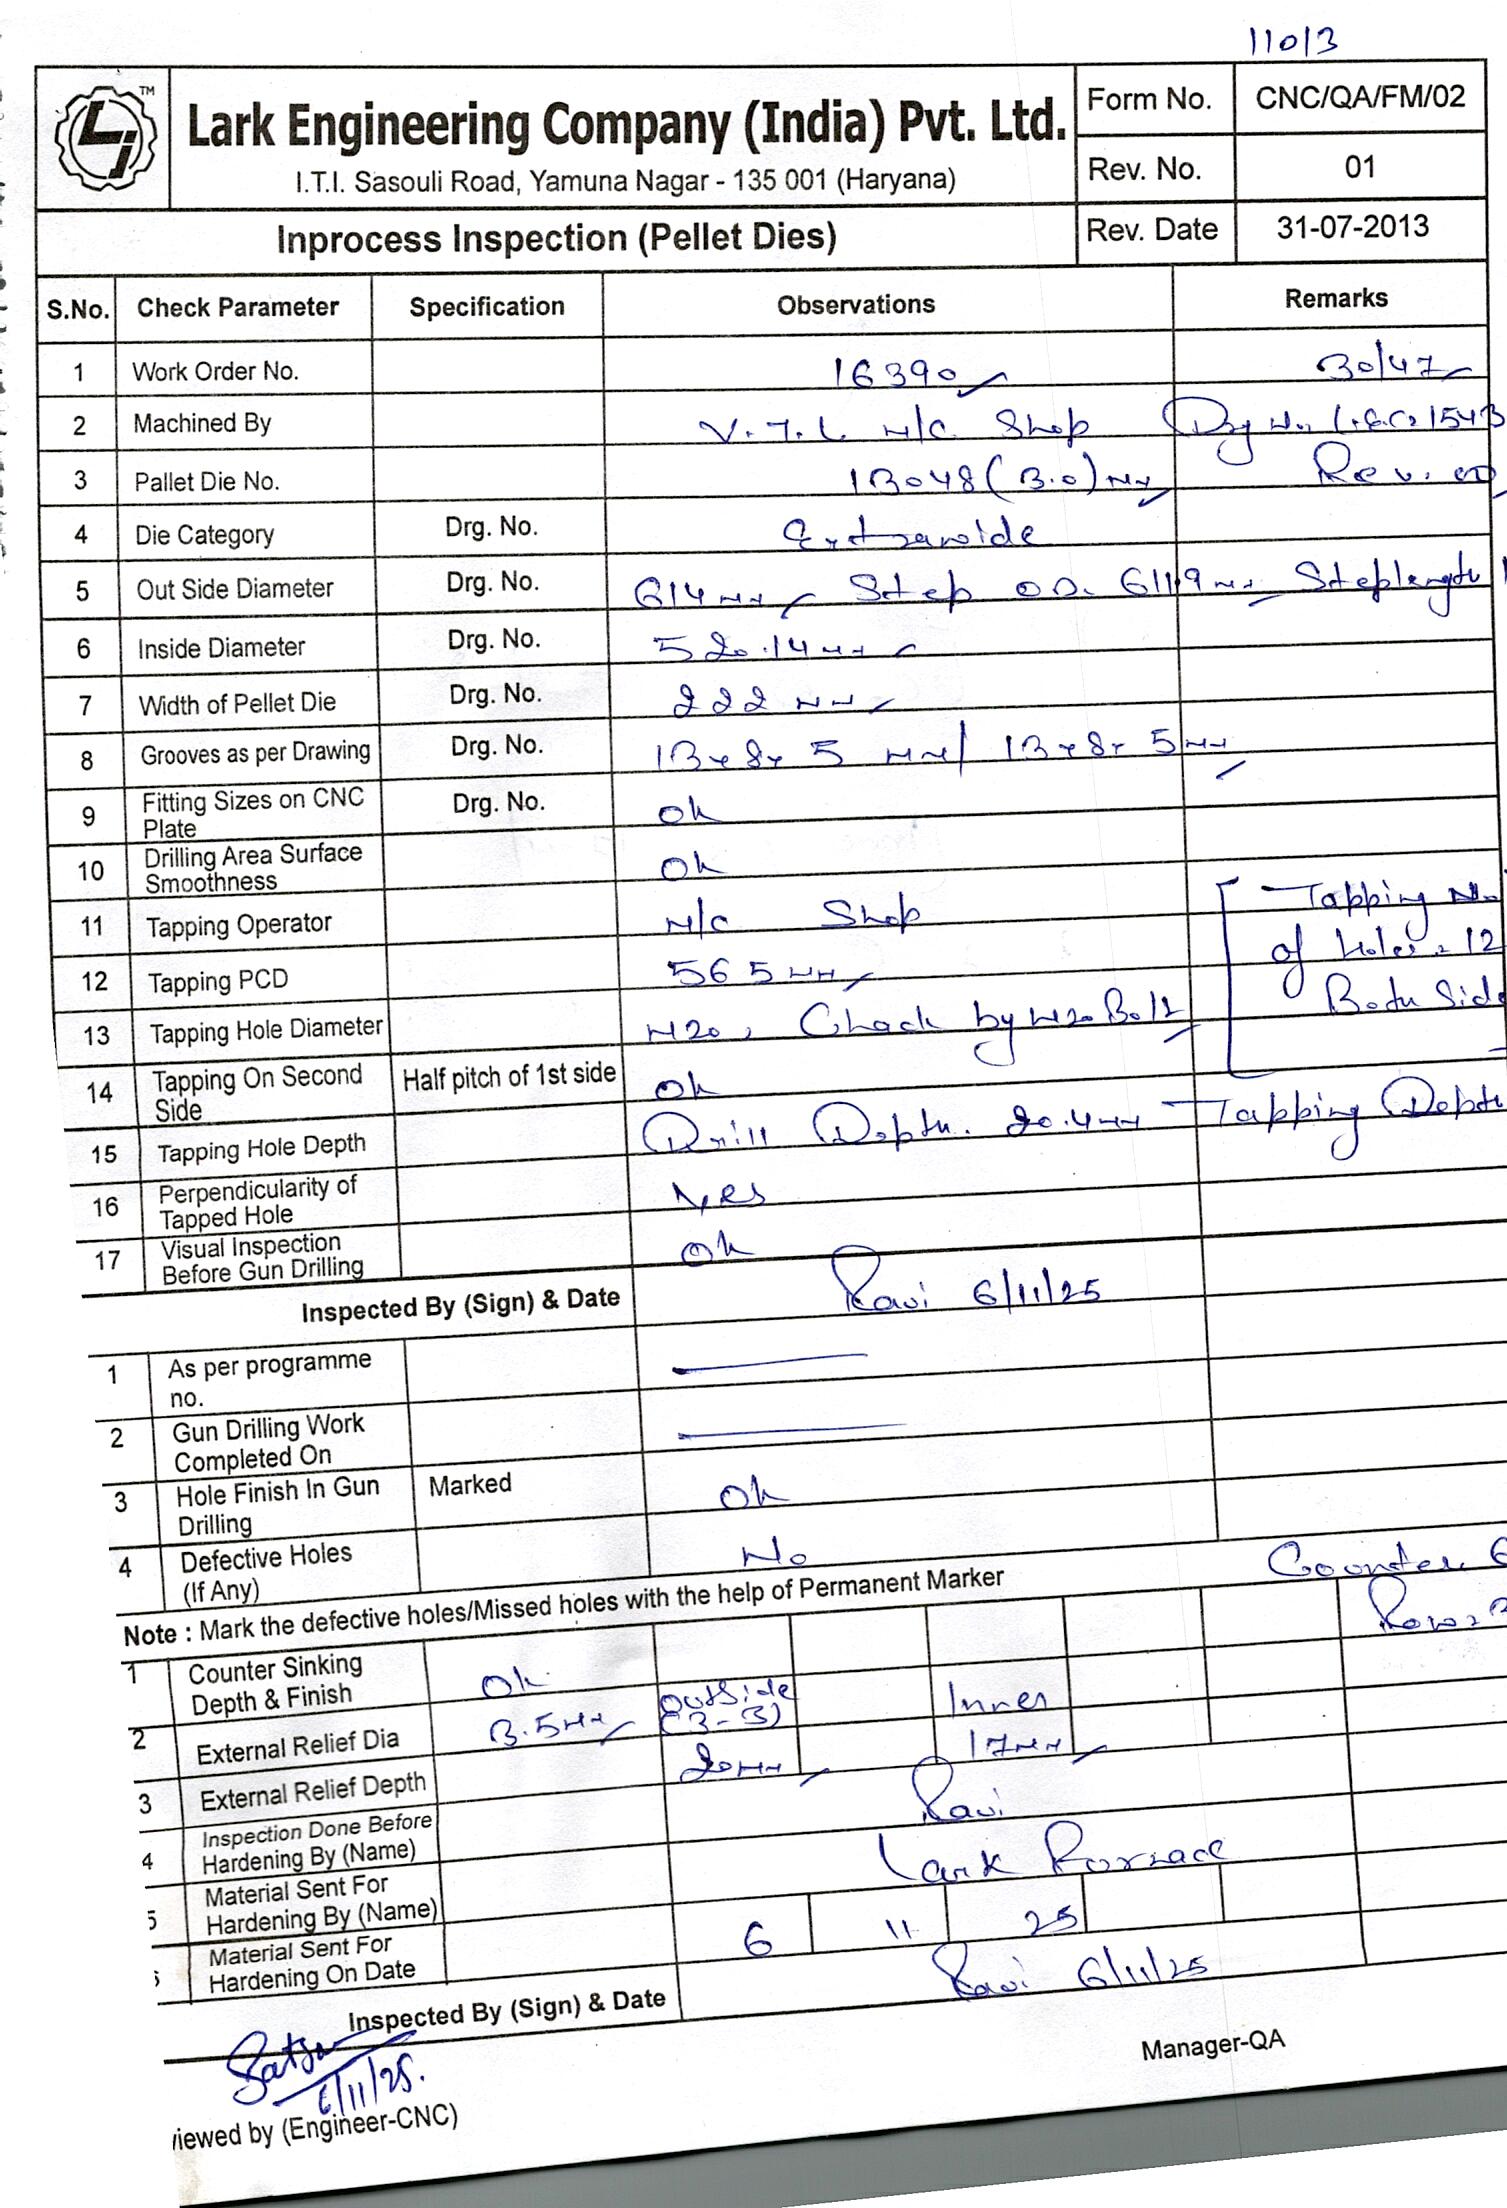 11013
TM
Lark Engineering Company (India) Pvt. Ltd.
I.T.I. Sasouli Road, Yamuna Nagar - 135 001 (Haryana)
Form No. CNC/QA/FM/02
Rev. No. 01
Inprocess Inspection (Pellet Dies)
Rev. Date 31-07-2013
S.No. Check Parameter Specification Observations Remarks
1 Work Order No. 16390 30/47
2 Machined By V.T.L M/C Shop Drg No. 1543
3 Pallet Die No. 13048 (3.0) mm Rev. 00
4 Die Category Drg. No. Extrawide
5 Out Side Diameter Drg. No. 614 mm Step OD. 611.9 mm Steplength
6 Inside Diameter Drg. No. 520.14 mm
7 Width of Pellet Die Drg. No. 222 mm
8 Grooves as per Drawing Drg. No. 13x8x5 mm / 13x8x5 mm
9 Fitting Sizes on CNC Plate Drg. No. Ok
10 Drilling Area Surface Smoothness Ok
11 Tapping Operator M/C Shop Tapping No.
12 Tapping PCD 565 mm of Holes = 12
13 Tapping Hole Diameter M20, Chack by M20 Bolt Both Side
14 Tapping On Second Side Half pitch of 1st side Ok
15 Tapping Hole Depth Drill Depth. 20.4mm Tapping Depth
16 Perpendicularity of Tapped Hole Yes
17 Visual Inspection Before Gun Drilling Ok
Inspected By (Sign) & Date Ravi 6/11/25
1 As per programme no.
2 Gun Drilling Work Completed On
3 Hole Finish In Gun Drilling Marked Ok
4 Defective Holes (If Any) No
Note : Mark the defective holes/Missed holes with the help of Permanent Marker Counter
1 Counter Sinking Depth & Finish Ok Outside Inner Row
2 External Relief Dia 3.5mm (3-3)
3 External Relief Depth 20mm 17mm
4 Inspection Done Before Hardening By (Name) Ravi
5 Material Sent For Hardening By (Name) Lark Fornace
Material Sent For Hardening On Date 6 11 25
Inspected By (Sign) & Date Ravi 6/11/25
6/11/25.
Manager-QA
iewed by (Engineer-CNC)